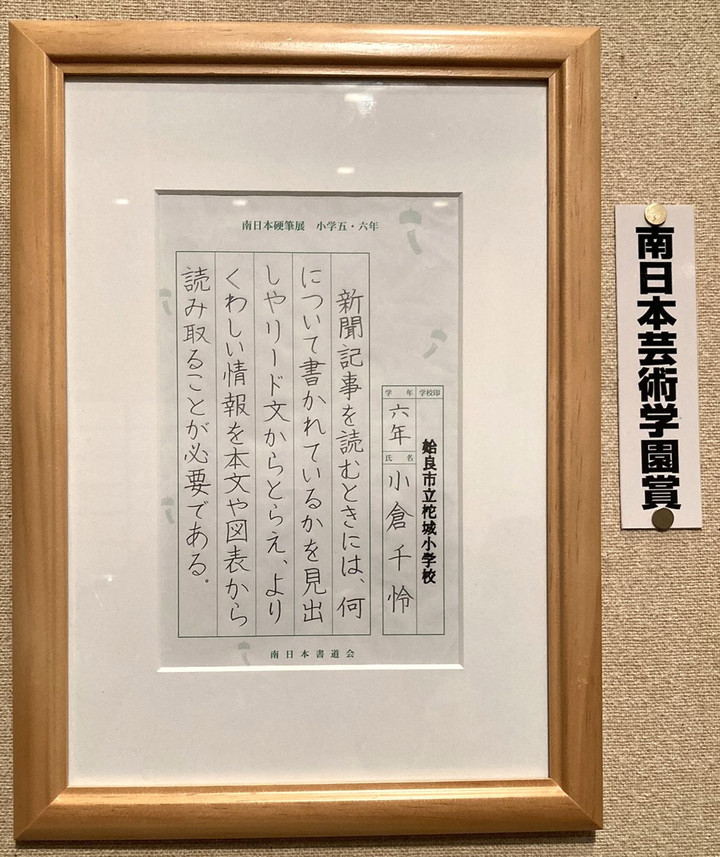 南日本硬筆展　小学五・六年
学校印
姶良市立柁城小学校
学年
六年
氏名
小倉千怜
新聞記事を読むときには、何
について書かれているかを見出
しやリード文からとらえ、より
くわしい情報を本文や図表から
読み取ることが必要である。
南日本書道会
南日本芸術学園賞